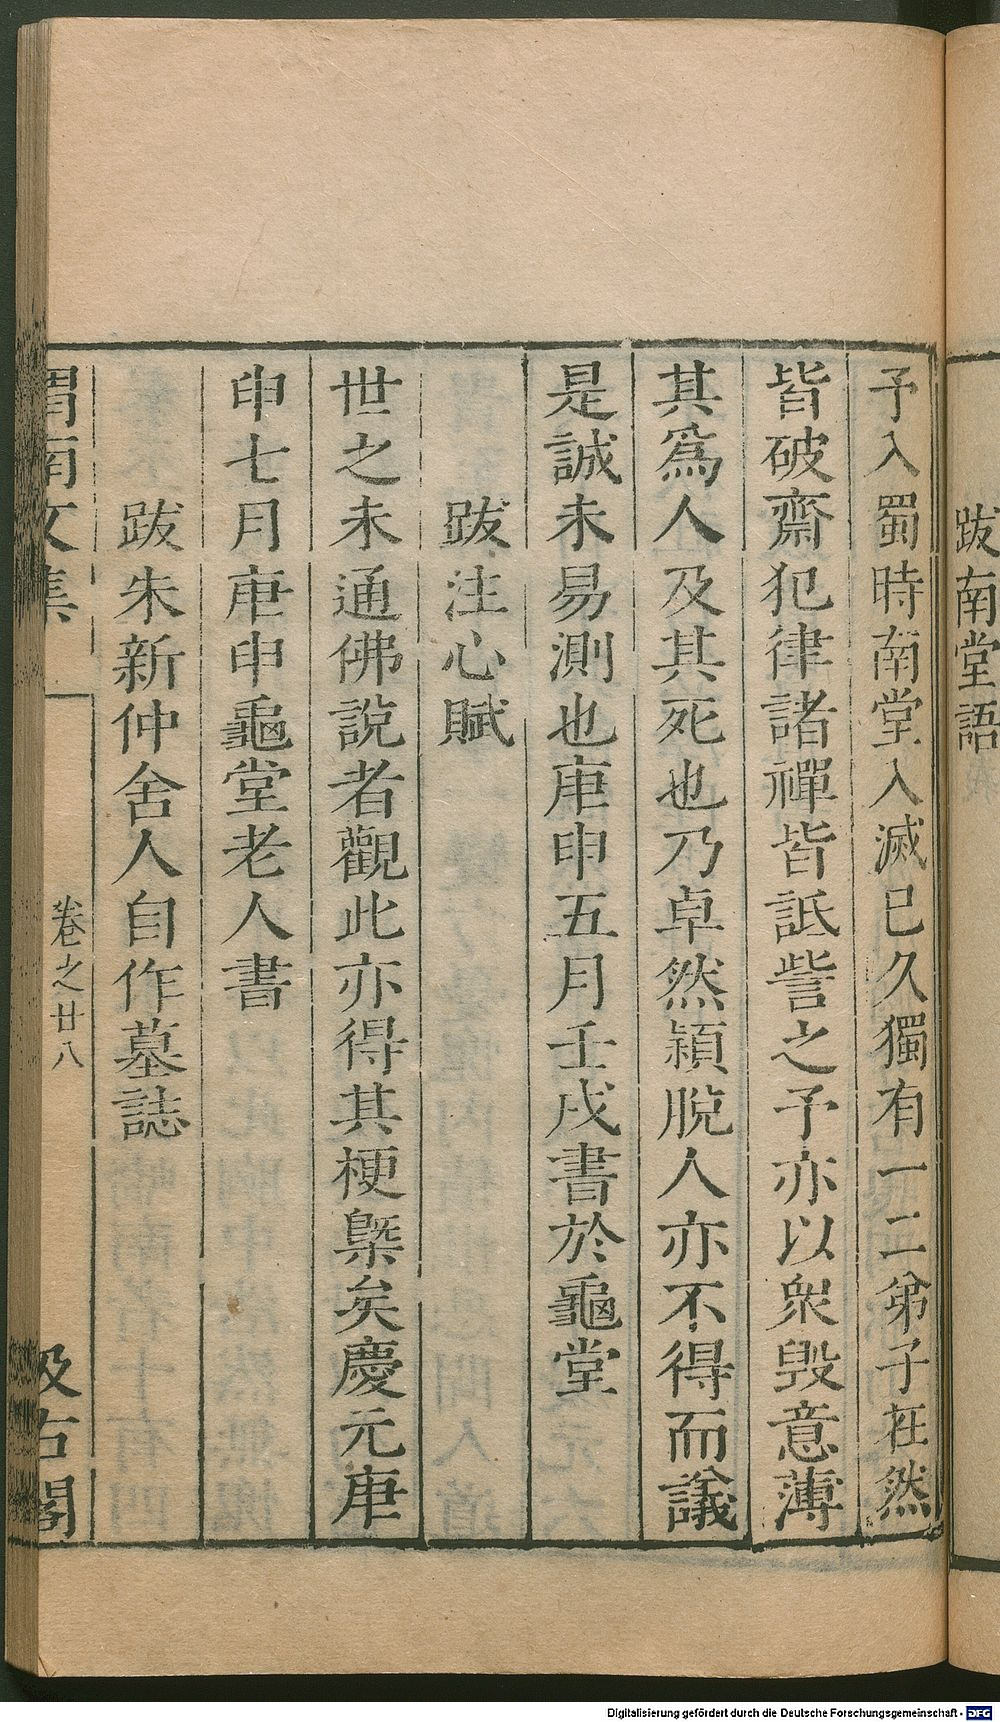 跋南堂語
予入蜀時南堂入滅已久獨有一二弟子在然
皆破齋犯律諸禪皆詆訾之予亦以衆毀意薄
其爲人及其死也乃卓然頴脫人亦不得而議
是誠未易測也庚申五月壬戌書於龜堂
跋注心賦
世之未通佛說者觀此亦得其梗槩矣慶元庚
申七月庚申龜堂老人書
跋朱新仲舍人自作墓誌
渭南文集
卷之廿八
汲古閣
Digitalisierung gefördert durch die Deutsche Forschungsgemeinschaft - DFG